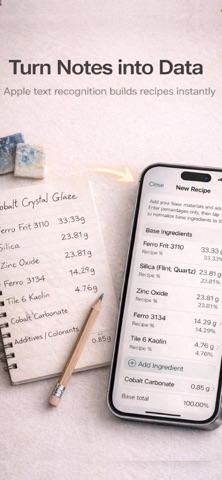 Turn Notes into Data
Apple text recognition builds recipes instantly
Cobalt Crystal Glaze
Ferro Frit 3110 33.33 g
Silica 23.81 g
Zinc Oxide 23.81 g
Ferro 3134 14.29 g
Tile 6 Kaolin 4.76 g
Cobalt Carbonate
Additives / Colorants 0.85 g
Close
New Recipe
Add your base materials and
Enter percentages only, then tap
to normalize base ingredients to
Base Ingredients
Ferro Frit 3110 33.33
Recipe % 33.33%
Silica (Flint, Quartz) 23.81 g
Recipe % 23.81%
Zinc Oxide 23.81 g
Recipe % 23.81%
Ferro 3134 14.29 g
Recipe % 14.29%
Tile 6 Kaolin 4.76 g
Recipe % 4.76%
Add Ingredient
Cobalt Carbonate 0.85 g
Base total 100.00%